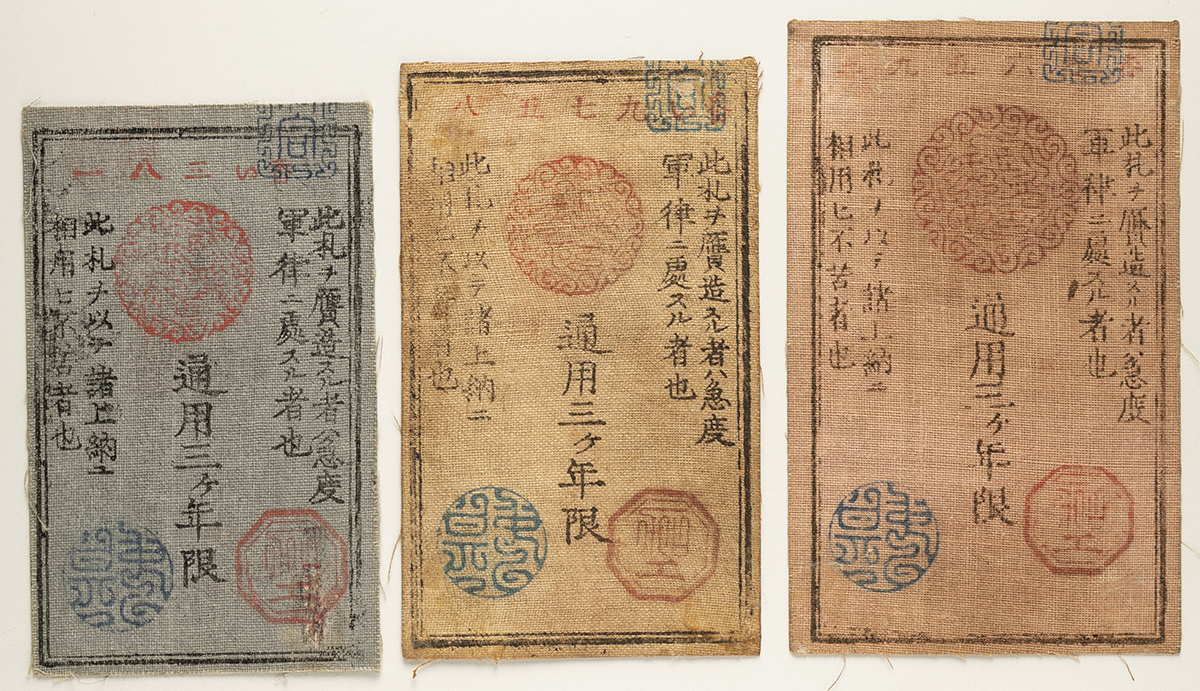 二八一
此札ヲ贋造スル者ハ急度
軍律ニ處スル者也
通用三ヶ年限
此札ヲ以テ諸上納ニ
相用ヒ不苦者也
九七五八
此札ヲ贋造スル者ハ急度
軍律ニ處スル者也
通用三ヶ年限
此札ヲ以テ諸上納ニ
也
九五八
此札ヲ贋造スル者ハ急度
軍律ニ處スル者也
通用三ヶ年限
此札ヲ以テ諸上納ニ
相用ヒ不苦者也